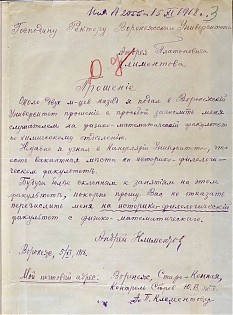 15 XI 1918. 3
Господину Ректору Воронежского Университета
Андрея Платоновича
Климентова
Прошение
Около двух м-цев назад я подал в Воронежский
Университет прошение с просьбой зачислить меня
слушателем на физико-математический факультет
по химическому отделению.
Нужно я узнал в Канцелярии Университета, что
есть вакантная места на историко-филологи-
ческом факультете.
Будучи более склонным к занятиям на этом
факультете, покорно прошу Вас не отказать
перечислить меня на историко-филологический
факультет с физико-математического.
Андрей Климентов
Воронеж, 5/XI, 1918.
Мой почтовый адрес: Воронеж, Стар-Конная,
Контроль Сборов Ю. В. ж. д.
А. П. Климентову